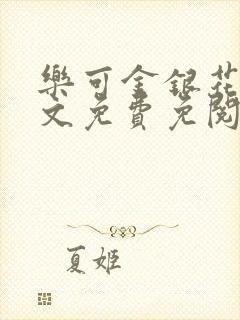 樂可金銀花
文免費免閱
夏姬